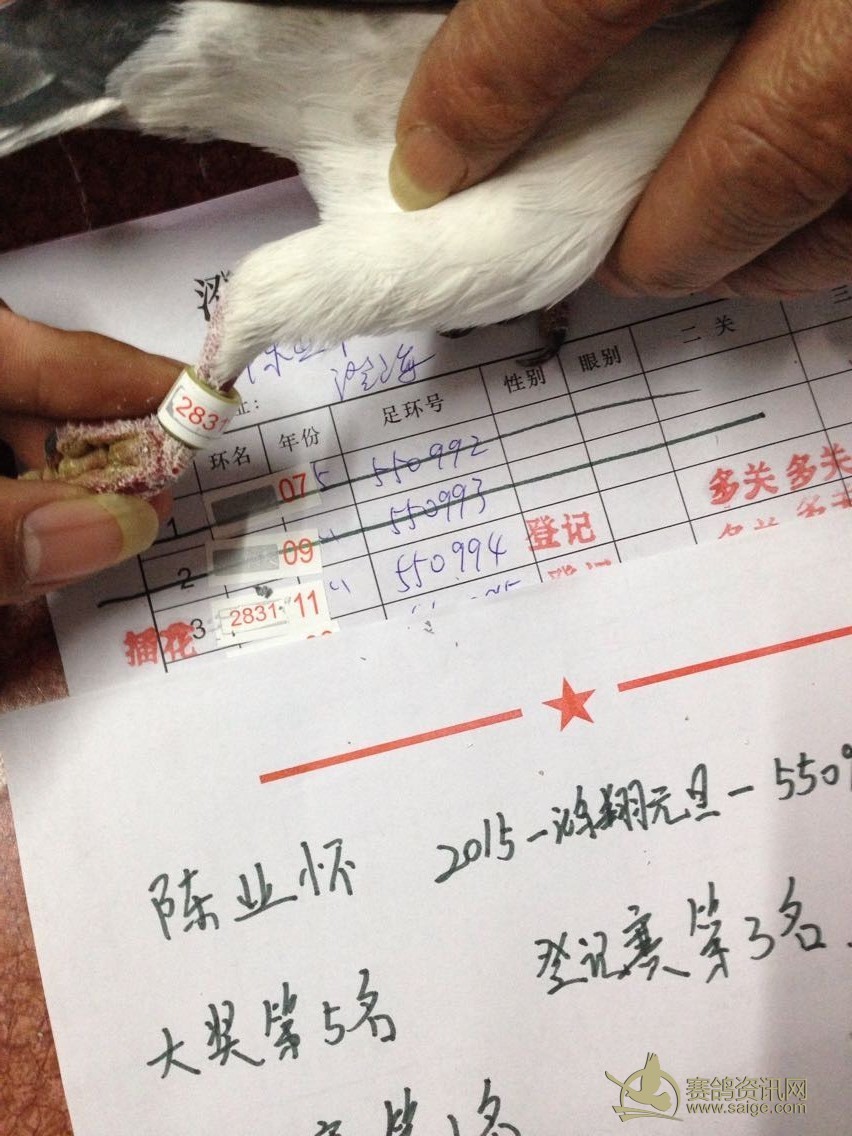 2831
址：
环名 年份 足环号 性别 眼别 二关 三
1 07 5 550992
2 09 " 550993 登记 多关 多关
插花 3 2831 11 " 550994
陈业怀 2015-濠翔元旦-5509
大奖第5名 登记赛第3名
第1名
赛鸽资讯网
www.saige.com